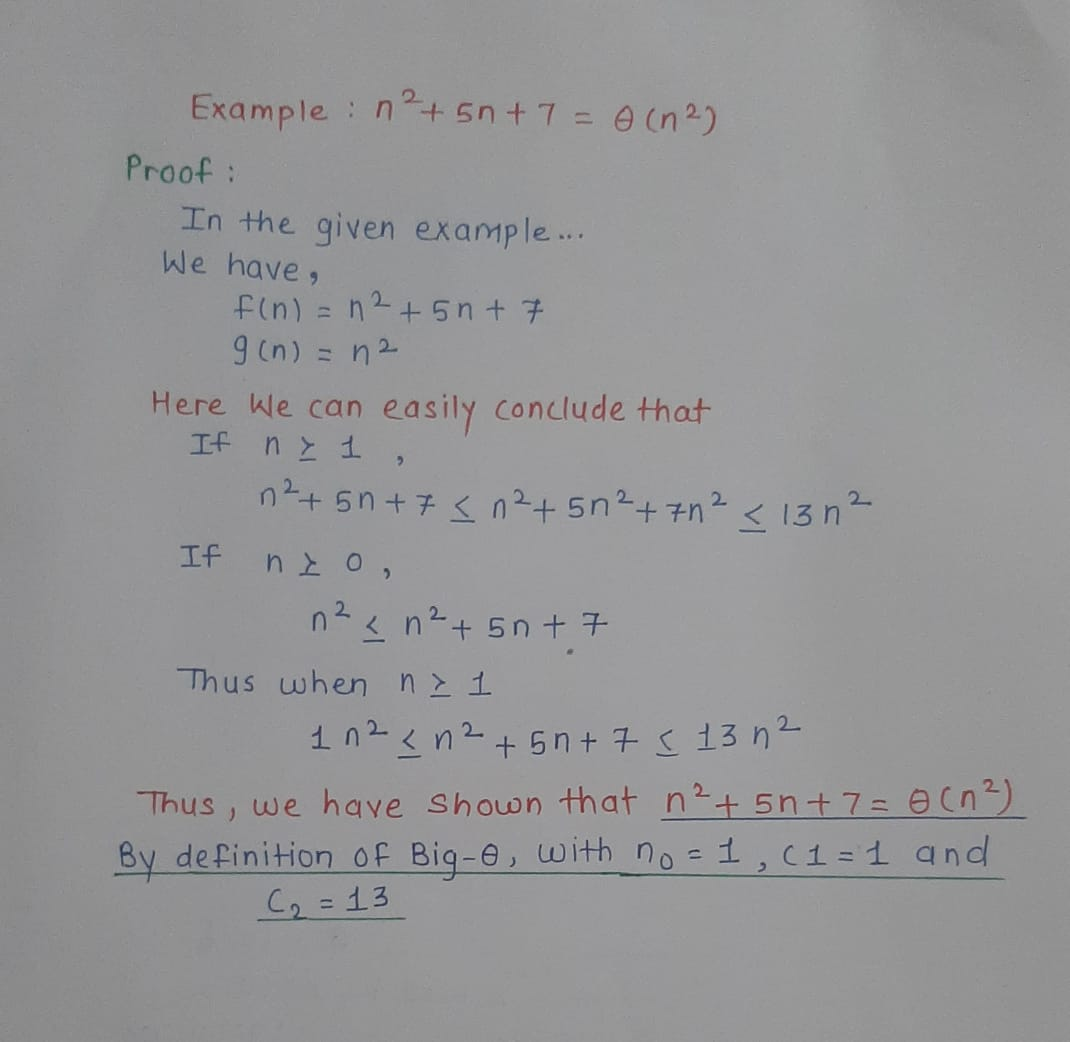 Example : n² + 5n + 7 = θ (n²)
Proof :
In the given example...
We have,
f(n) = n² + 5n + 7
g(n) = n²
Here We can easily conclude that
If n ≥ 1 ,
n² + 5n + 7 ≤ n² + 5n² + 7n² ≤ 13n²
If n ≥ 0 ,
n² ≤ n² + 5n + 7
Thus when n ≥ 1
1 n² ≤ n² + 5n + 7 ≤ 13 n²
Thus , we have shown that n² + 5n + 7 = θ(n²)
By definition of Big-θ, with n₀ = 1 , C1 = 1 and
C₂ = 13